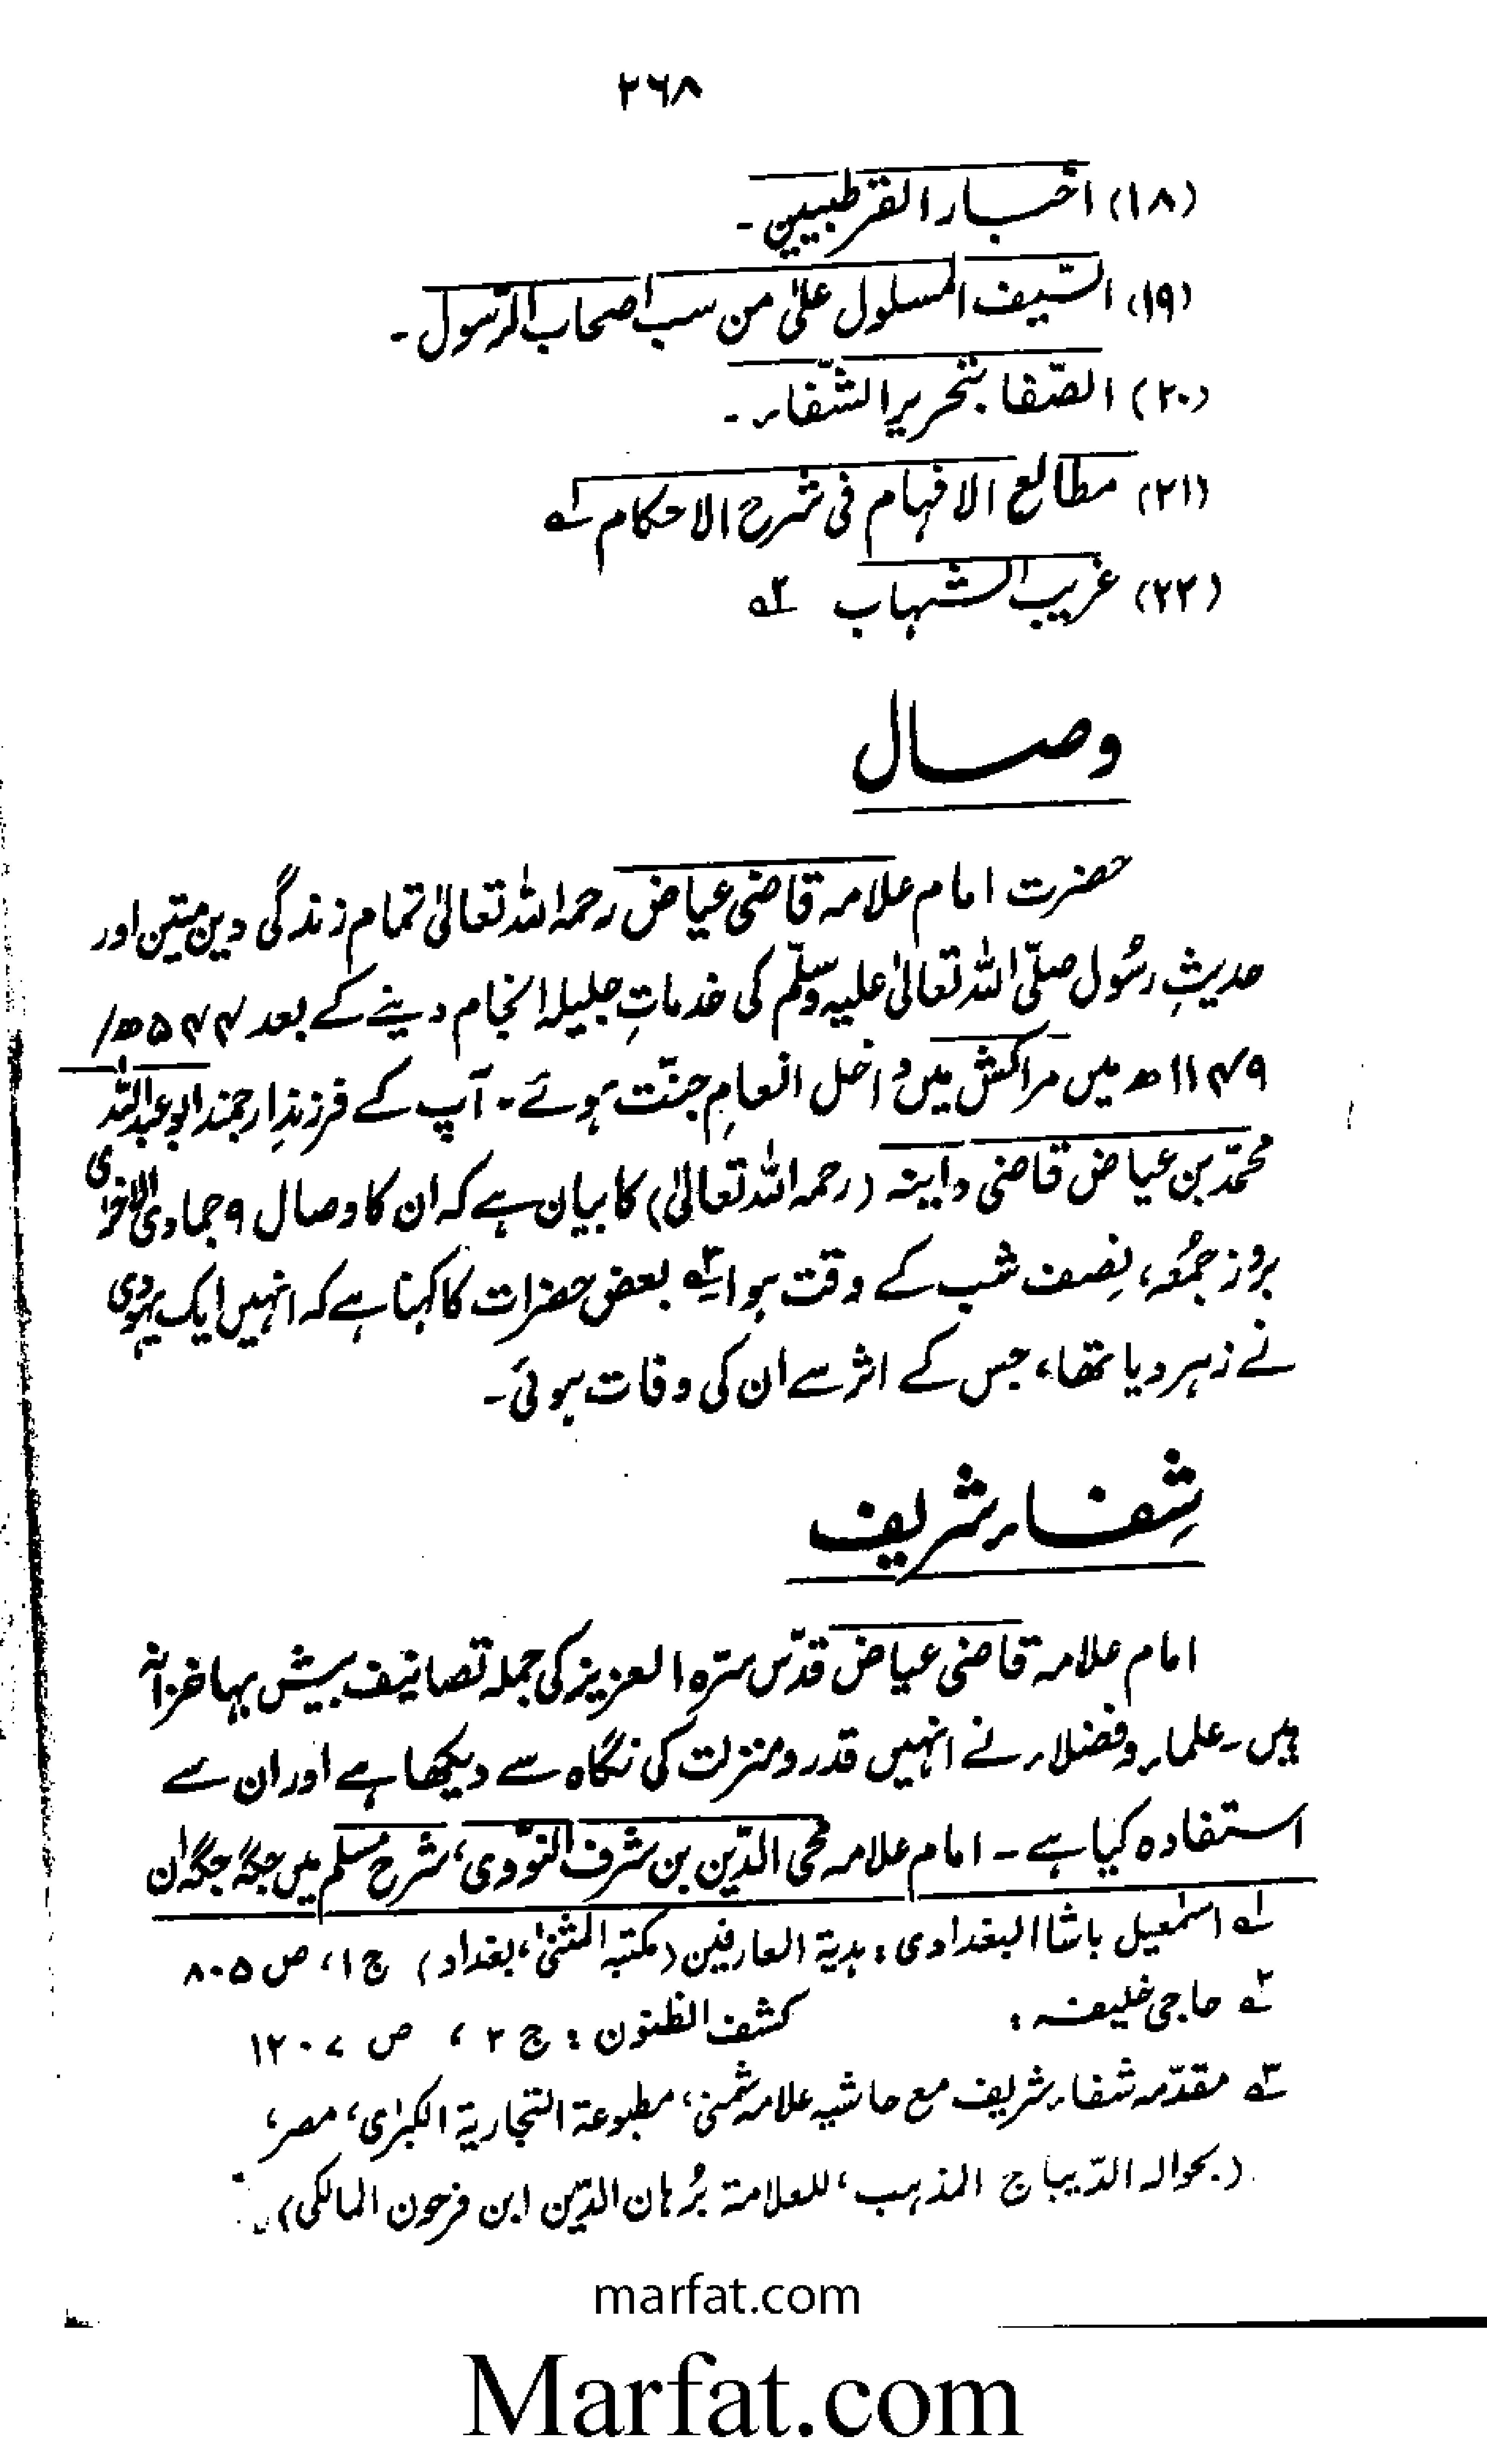 ۲۶۸
(۱۸) اخبار القرطبیین ۔
(۱۹) السّیف المسلول علیٰ من سب اصحاب الرّسول ۔
(۲۰) الصّفا بتحریر الشّفاء ۔
(۲۱) مطالع الافہام فی شرح الاحکام ۱؎
(۲۲) غریب الشہاب ۲؎
وصال
حضرت امام علامہ قاضی عیاض رحمہ اللہ تعالیٰ تمام زندگی دینِ متین اور
حدیثِ رسُول صلّی اللہ تعالیٰ علیہ وسلّم کی خدماتِ جلیلہ انجام دینے کے بعد ۵۴۴ھ/
۱۱۴۹ھ میں مراکش میں داخل انعامِ جنّت ہوئے ۔ آپ کے فرزندِ ارجمند ابو عبد اللہ
محمّد بن عیاض قاضی دانیہ (رحمہ اللہ تعالیٰ) کا بیان ہے کہ ان کا وصال ۹ جمادی الاخرٰی
بروز جمُعہ، نِصف شب کے وقت ہوا ۳؎ بعض حضرات کا کہنا ہے کہ انہیں ایک یہودی
نے زہر دیا تھا، جس کے اثر سے ان کی وفات ہوئی ۔
شِفاء شریف
امام علامہ قاضی عیاض قدّس سرّہ العزیز کی جملہ تصانیف بیش بہا خزانہ
ہیں ۔ علماء و فضلاء نے انہیں قدر و منزلت کی نگاہ سے دیکھا ہے اور ان سے
استفادہ کیا ہے ۔ امام علامہ محی الدّین بن شرف النّووی، شرح مسلم میں جگہ جگہ ان
۱؎ اسمٰعیل باشا البغدادی : ہدیۃ العارفین (مکتبہ المثنیٰ، بغداد) ج ۱، ص ۸۰۵
۲؎ حاجی خلیفہ : کشف الظنون : ج ۲ ، ص ۱۲۰۷
۳؎ مقدّمہ شفاء شریف مع حاشیہ علامہ شمنی، مطبوعۃ التجاریۃ الکبرٰی، مصر،
(بحوالہ الدّیباج المذہب، للعلامۃ بُرہان الدّین ابن فرحون المالکی)
marfat.com
Marfat.com